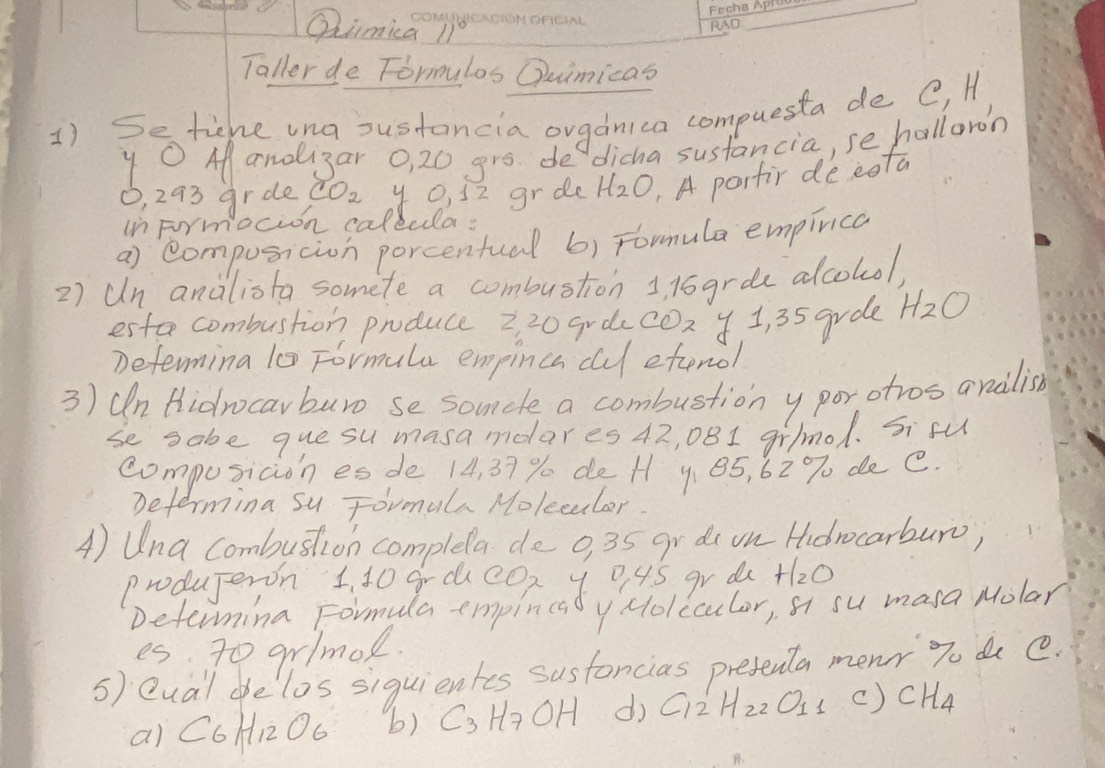 COMUNICACIÓN OFICIAL
Fecha
RAD
Química 11°
Taller de Fórmulas Químicas
1) Se tiene una sustancia orgánica compuesta de C, H,
y O Al analizar 0,20 grs. de dicha sustancia, se hallarón
0,293 gr de CO2 y 0,12 gr de H2O, A partir de esta
información calcula:
a) Composición porcentual b) Formula empírica
2) Un analista somete a combustión 1,15 gr de alcohol,
esta combustión produce 2,20 gr de CO2 y 1,35 gr de H2O
Determina la Fórmula empírica del etanol
3) Un Hidrocarburo se somete a combustión y por otros análisis
se sabe que su masa molar es 42,081 gr/mol. Si su
composición es de 14,37 % de H y, 85,62 % de C.
Determina su Fórmula Molecular.
4) Una combustión completa de 0,35 gr de un Hidrocarburo,
produjerón 1,10 gr de CO2 y 0,45 gr de H2O
Determina Fórmula empírica y Molécular, si su masa Molar
es 70 gr/mol.
5) Cuál de los siguientes sustancias presenta menor % de C.
a) C6H12O6 b) C3H7OH d) C12H22O11 c) CH4